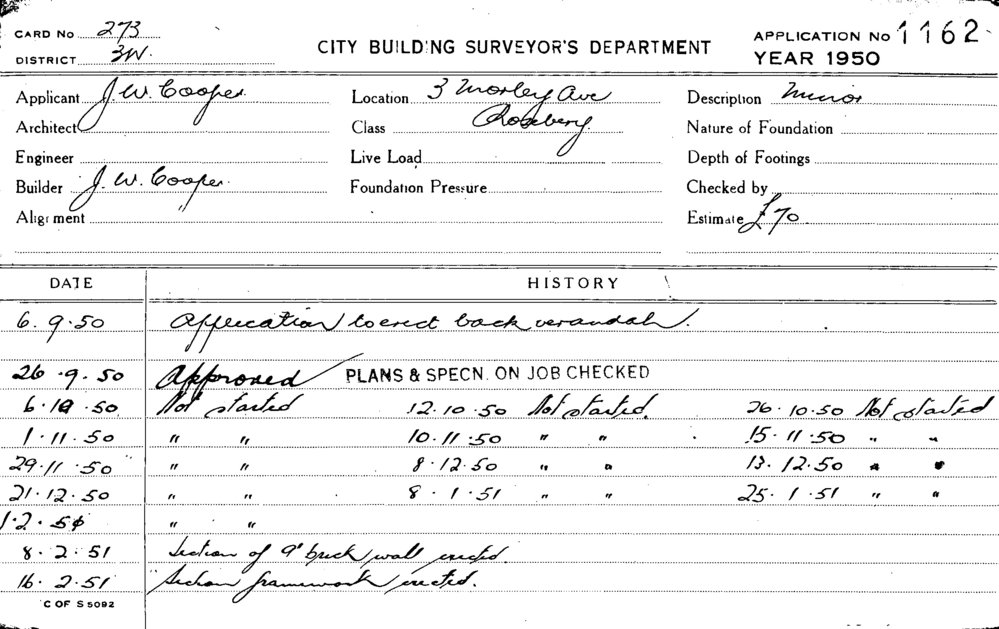 CARD No 273
DISTRICT 3W.
CITY BUILDING SURVEYOR'S DEPARTMENT
APPLICATION No 1162
YEAR 1950
Applicant J. W. Cooper. Location 3 Morley Ave Description Minor
Architect Class Rosebery. Nature of Foundation
Engineer Live Load Depth of Footings
Builder J. W. Cooper. Foundation Pressure Checked by
Alignment Estimate £70
DATE HISTORY
6.9.50 Application to erect back verandah.
26.9.50 Approved PLANS & SPECN. ON JOB CHECKED
6.10.50 Not started 12.10.50 Not started. 26.10.50 Not started
1.11.50 " " 10.11.50 " " 15.11.50 " "
29.11.50 " " 8.12.50 " " 13.12.50 " "
21.12.50 " " 8.1.51 " " 25.1.51 " "
1.2.51 " "
8.2.51 Section of 9" brick wall erected.
16.2.51 Section framework erected.
C OF S 5092